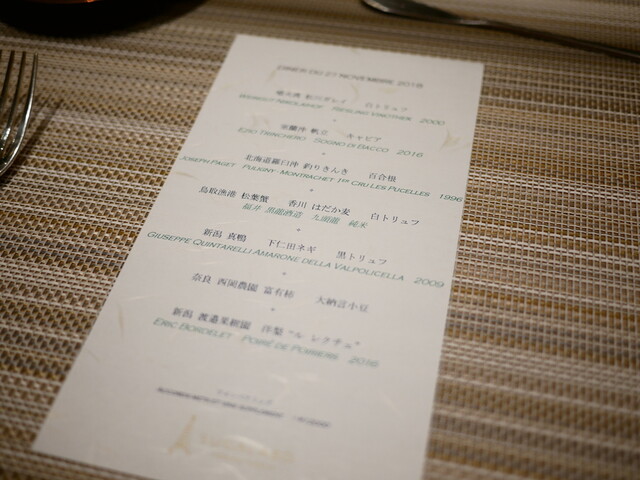 DINER DU 27 NOVEMBRE 2018
噴火湾 松川ガレイ 白トリュフ
WEINGUT NIKOLAIHOF RIESLING VINOTHEK 2000
室蘭沖 帆立 キャビア
EZIO TRINCHERO SOGNO DI BACCO 2016
北海道羅臼沖 釣りきんき 百合根
JOSEPH PAGET PULIGNY-MONTRACHET 1ER CRU LES PUCELLES 1996
鳥取漁港 松葉蟹 香川 はだか麦 白トリュフ
福井 黒龍酒造 九頭龍 純米
新潟 真鴨 下仁田ネギ 黒トリュフ
GIUSEPPE QUINTARELLI AMARONE DELLA VALPOLICELLA 2009
奈良 西岡農園 富有柿 大納言小豆
新潟 渡邉果樹園 洋梨 "ル レクチェ"
ERIC BORDELET POIRÉ DE POIRIERS 2016